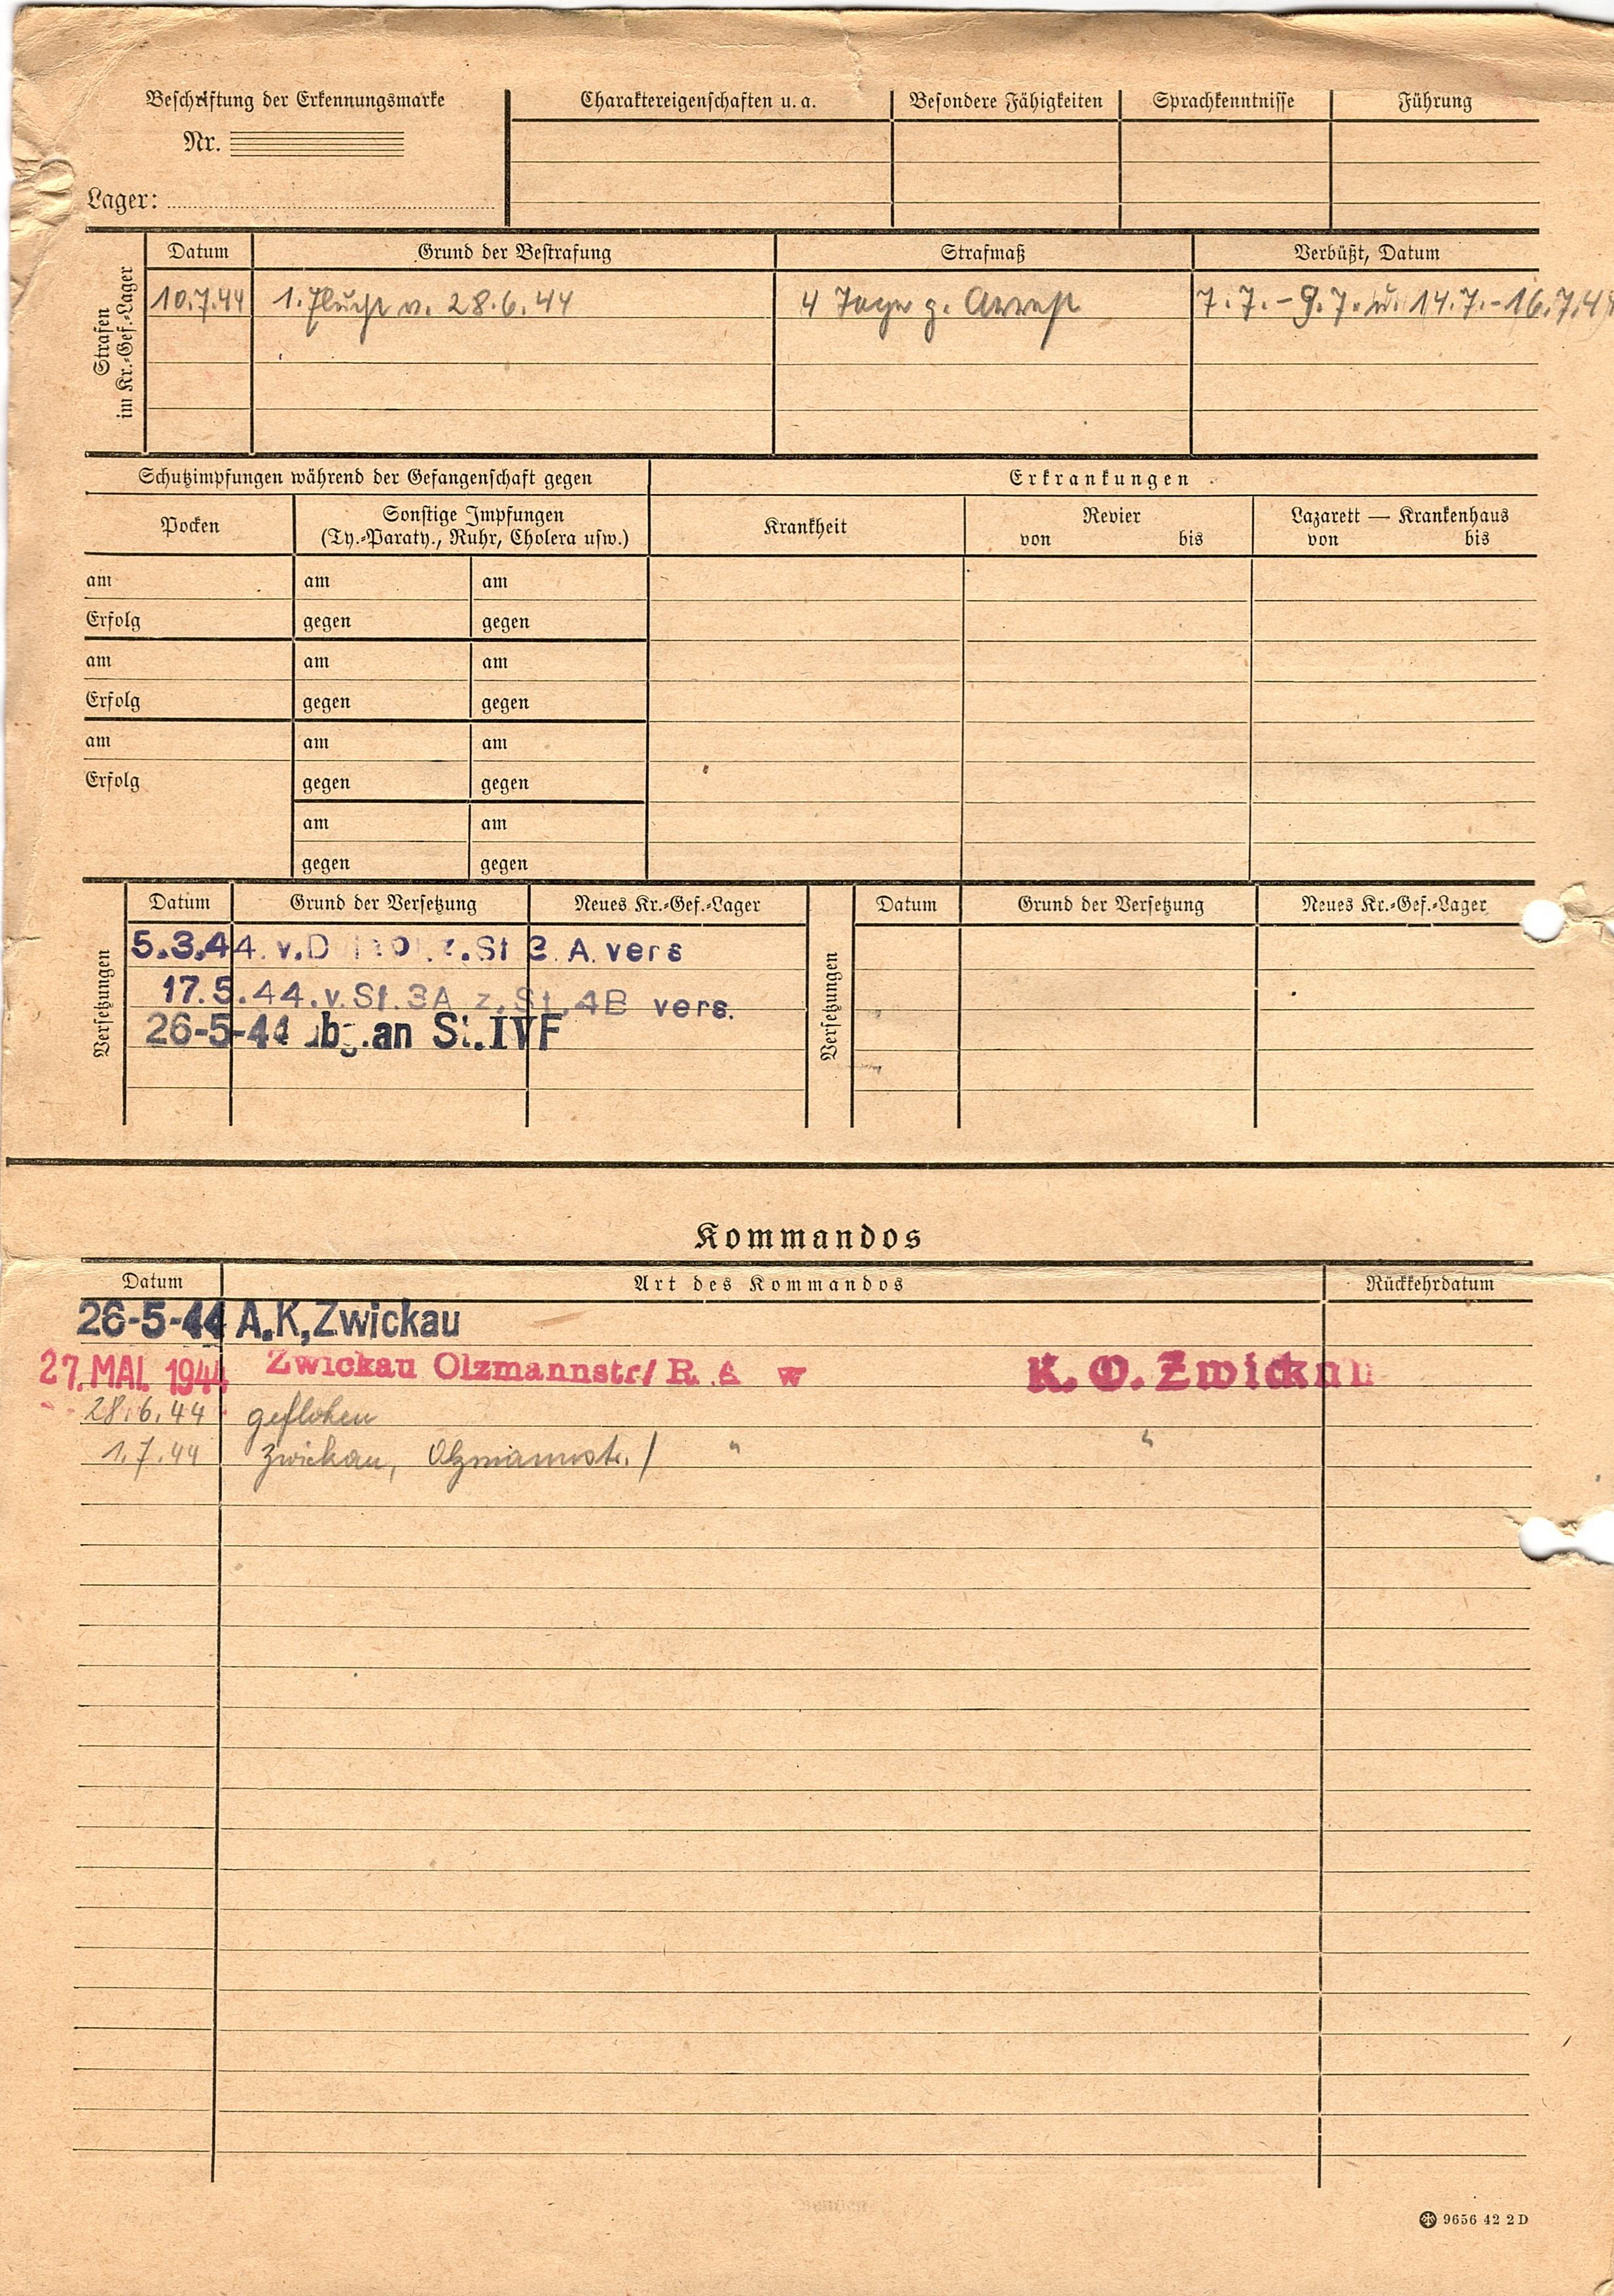 Beschriftung der Erkennungsmarke
Nr.
Lager:
Charaktereigenschaften u. a.
Besondere Fähigkeiten
Sprachkenntnisse
Führung
Strafen im Kr.-Gef.-Lager
Datum Grund der Bestrafung Strafmaß Verbüßt, Datum
10.7.44 1. Flucht v. 28.6.44 4 Tage g. Arrest 7.7.-9.7. u. 14.7.-16.7.44
Schutzimpfungen während der Gefangenschaft gegen
Erkrankungen
Pocken
Sonstige Impfungen
(Ty.-Paraty., Ruhr, Cholera usw.)
Krankheit
Revier
von bis
Lazarett — Krankenhaus
von bis
am am am
Erfolg gegen gegen
am am am
Erfolg gegen gegen
am am am
Erfolg gegen gegen
am am
gegen gegen
Versetzungen
Datum Grund der Versetzung Neues Kr.-Gef.-Lager
5.3.44. v. z. St 3. A. vers
17.5.44. v. St. 3A z. St. 4B vers.
26-5-44 an St. IVF
Versetzungen
Datum Grund der Versetzung Neues Kr.-Gef.-Lager
Kommandos
Datum Art des Kommandos Rückkehrdatum
26-5-44 A.K, Zwickau
27. MAI. 1944 Zwickau Olzmannstr/ R. K. O. Zwickau
28.6.44 geflohen
1.7.44 Zwickau, Olzmannstr. / " "
9656 42 2 D